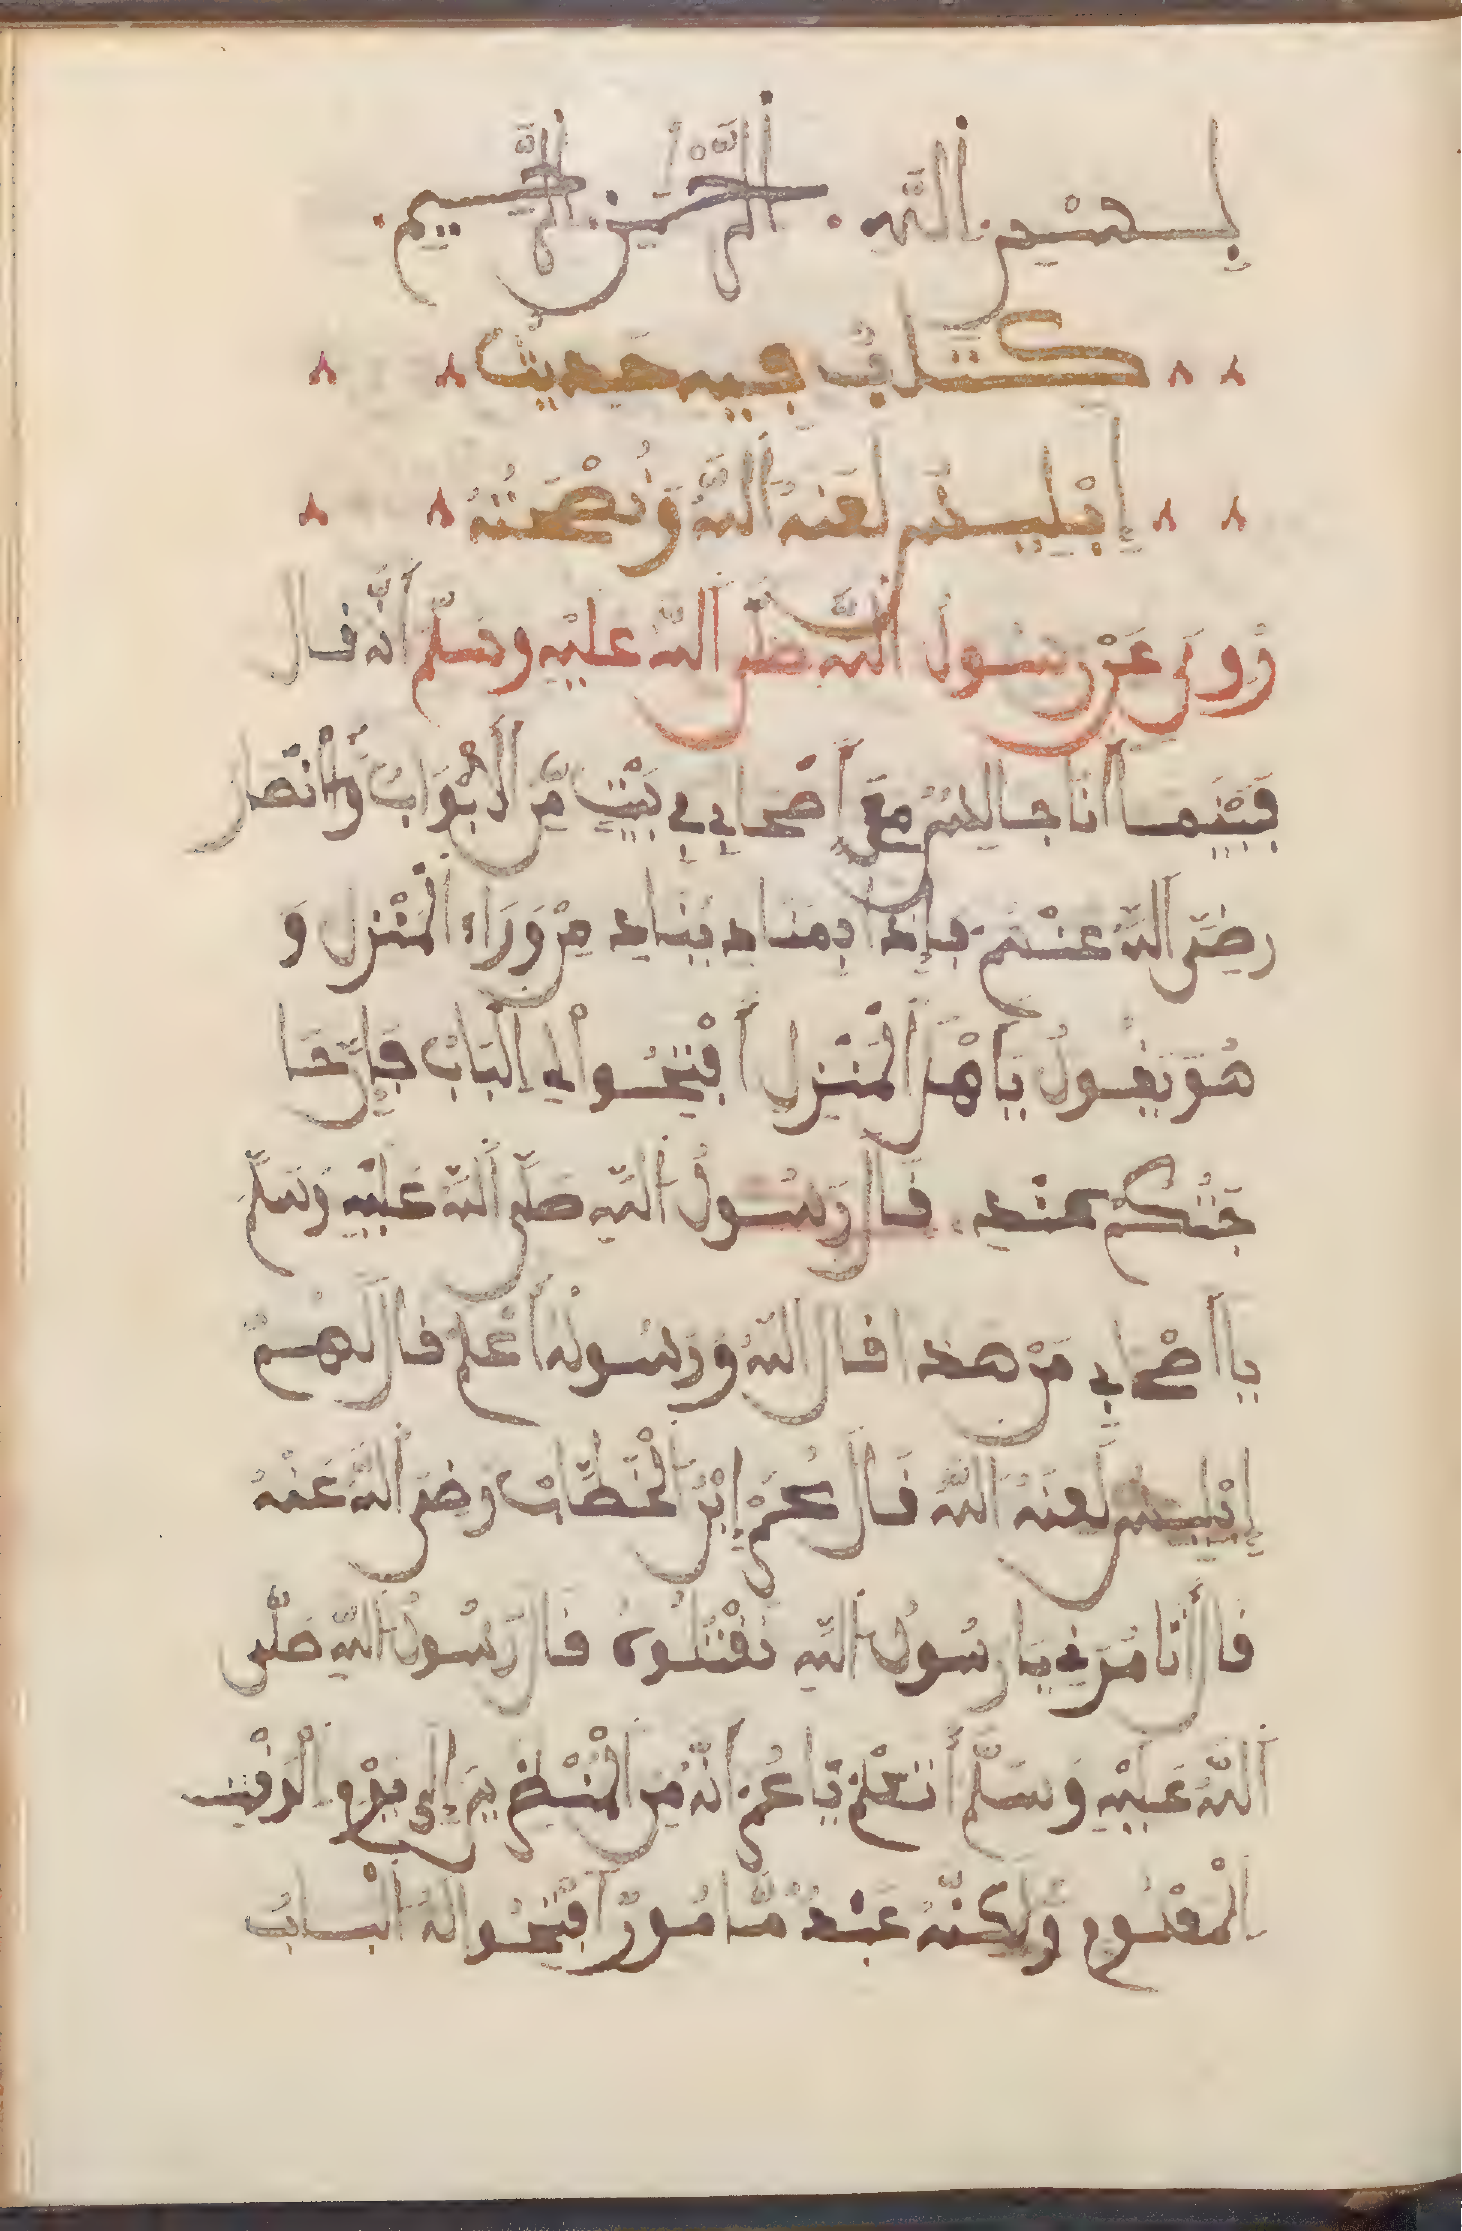 بسم الله الرحمن الرحيم
كتاب فيه حديث
إبليس لعنه الله ونصحته
روي عن رسول الله صلى الله عليه وسلم أنه قال
فبينما أنا جالس مع أصحابي في بيت من الأبواب والأنصار
رضي الله عنهم فإذا بمناد يناد من وراء المنزل و
هو يقول يا أهل المنزل افتحوا لي الباب فإن حا
جتكم عند قال رسول الله صلى الله عليه وسلم
يا أصحابي من هذا قال الله ورسوله أعلم قال لهم
إبليس لعنه الله قال عمر إبن الخطاب رضي الله عنه
قال أتامرني يا رسول الله نقتلوه قال رسول الله صلى
الله عليه وسلم أتعلم يا عمر أنه من المنظرين إلى يوم الوقت
المعلوم ولكنه عبد مامور افتحوا له الباب